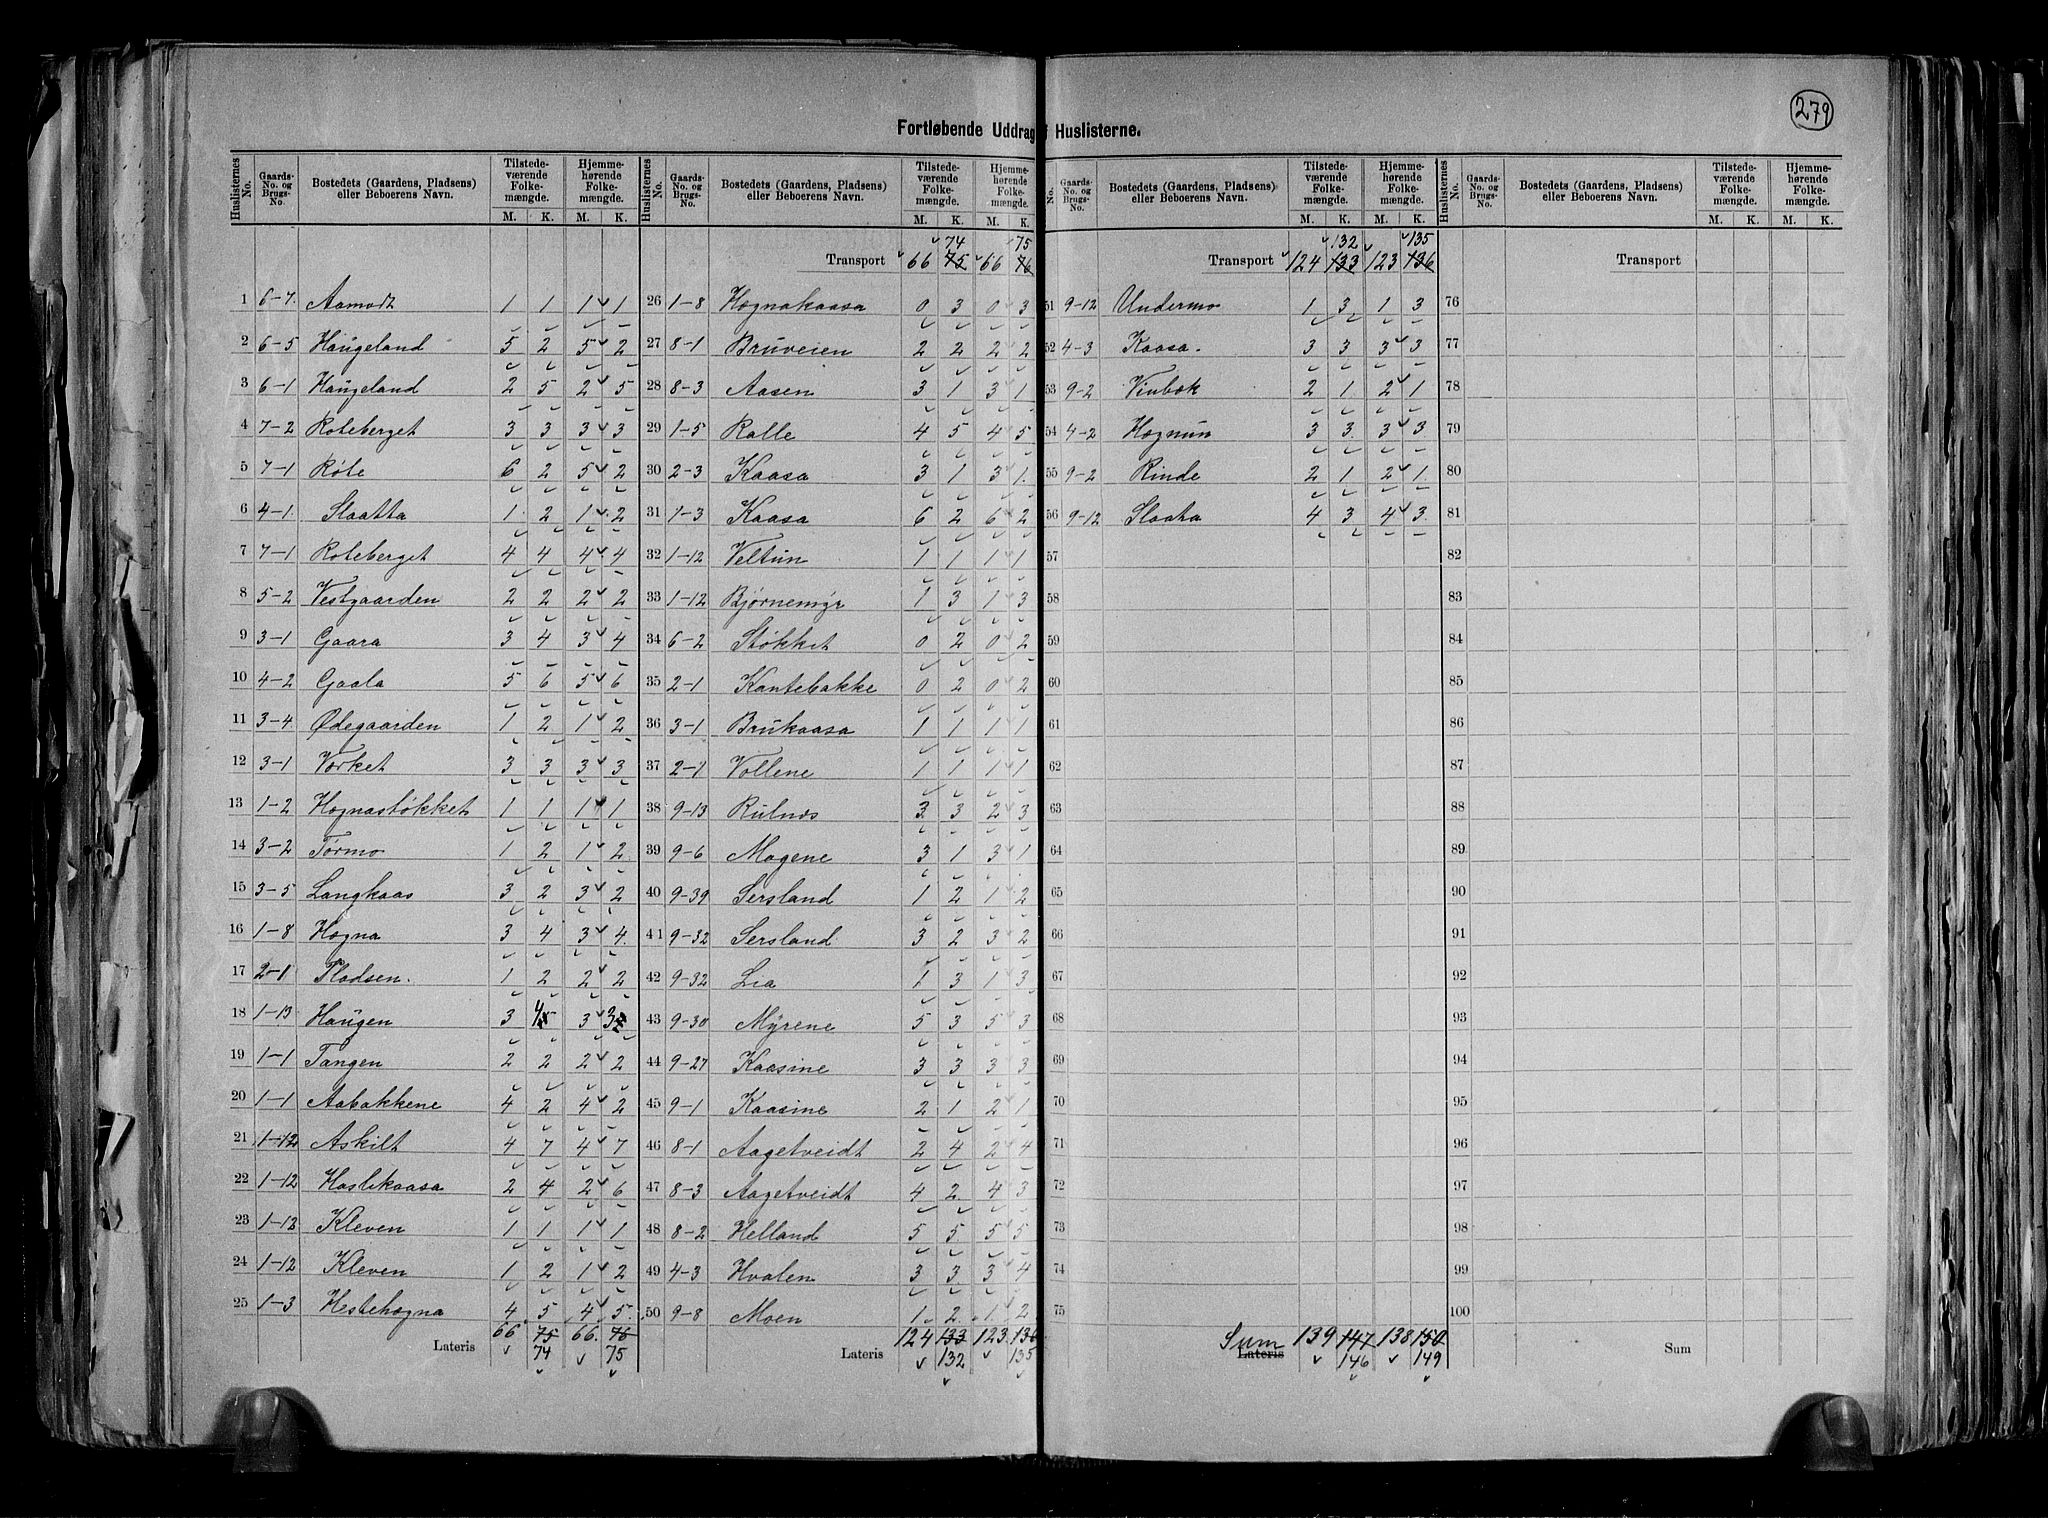 279
Fortløbende Uddrag Huslisterne.
Huslisternes No. Gaards-No. og Brugs-No. Bostedets (Gaardens, Pladsens) eller Beboerens Navn. Tilstedeværende Folkemængde. M. K. Hjemmehørende Folkemængde. M. K.
1 6-7. Aamodt 1 1 1 1
2 6-5 Haugeland 5 2 5 2
3 6-1 Haugeland 2 5 2 5
4 7-2 Roteberget 3 3 3 3
5 7-1 Røte 6 2 5 2
6 4-1. Slaatta 1 2 1 2
7 7-1 Roteberget 4 4 4 4
8 5-2 Vestgaarden 2 2 2 2
9 3-1 Gaara 3 4 3 4
10 4-2 Gaala 5 6 5 6
11 3-4 Ødegaarden 1 2 1 2
12 3-1 Værket 3 3 3 3
13 1-2 Høgnastøkket 1 1 1 1
14 3-2 Tørmo 1 2 1 2
15 3-5 Langkaas 3 2 3 2
16 1-8 Høgna 3 4 3 4
17 2-1 Pladsen. 1 2 2 2
18 1-13 Haugen 3 4 3 3
19 1-1 Tangen 2 2 2 2
20 1-1 Aabakkene 4 2 4 2
21 1-12 Askilt 4 7 4 7
22 1-12 Haslekaasa 2 4 2 6
23 1-13 Kleven 1 1 1 1
24 1-12 Kleven 1 2 1 2
25 1-3 Hestehøgna 4 5 4 5
Lateris 66 75 66 76
74 75
Huslisternes No. Gaards-No. og Brugs-No. Bostedets (Gaardens, Pladsens) eller Beboerens Navn. Tilstedeværende Folkemængde. M. K. Hjemmehørende Folkemængde. M. K.
74 75
Transport 66 75 66 76
26 1-8 Høgnakaasa 0 3 0 3
27 8-1 Bruveien 2 2 2 2
28 8-3 Aasen 3 1 3 1
29 1-5 Kalle 4 5 4 5
30 2-3 Kaasa 3 1 3 1
31 1-3 Kaasa 6 2 6 2
32 1-12 Veltun 1 1 1 1
33 1-12 Bjørnemyr 1 3 1 3
34 6-2 Støkket 0 2 0 2
35 2-1 Kantebakke 0 2 0 2
36 3-1 Brukaasa 1 1 1 1
37 2-1 Vollene 1 1 1 1
38 9-13 Rulnæs 3 3 2 3
39 9-6 Mogene 3 1 3 1
40 9-39 Sersland 1 2 1 2
41 9-32 Sersland 3 2 3 2
42 9-32 Lia 1 3 1 3
43 9-30 Myrene 5 3 5 3
44 9-27 Kaasine 3 3 3 3
45 9-1 Kaasine 2 1 2 1
46 8-1 Aagetveidt 2 4 2 4
47 8-3 Aagetveidt 4 2 4 3
48 8-2 Helland 5 5 5 5
49 4-3 Hvalen 3 3 3 4
50 9-8 Moen 1 2 1 2
Lateris 124 133 123 136
132 135
No. Gaards-No. og Brugs-No. Bostedets (Gaardens, Pladsens) eller Beboerens Navn. Tilstedeværende Folkemængde. M. K. Hjemmehørende Folkemængde. M. K.
132 135
Transport 124 133 123 136
51 9-12 Undermo 1 3 1 3
52 4-3 Kaasa. 3 3 3 3
53 9-2 Vinbæk 2 1 2 1
54 4-2 Høgnun 3 3 3 3
55 9-2 Rinde 2 1 2 1
56 9-12 Slaata 4 3 4 3
57
58
59
60
61
62
63
64
65
66
67
68
69
70
71
72
73
74
75
Sum Lateris 139 147 138 150
146 149
Huslisternes No. Gaards-No. og Brugs-No. Bostedets (Gaardens, Pladsens) eller Beboerens Navn. Tilstedeværende Folkemængde. M. K. Hjemmehørende Folkemængde. M. K.
Transport
76
77
78
79
80
81
82
83
84
85
86
87
88
89
90
91
92
93
94
95
96
97
98
99
100
Sum